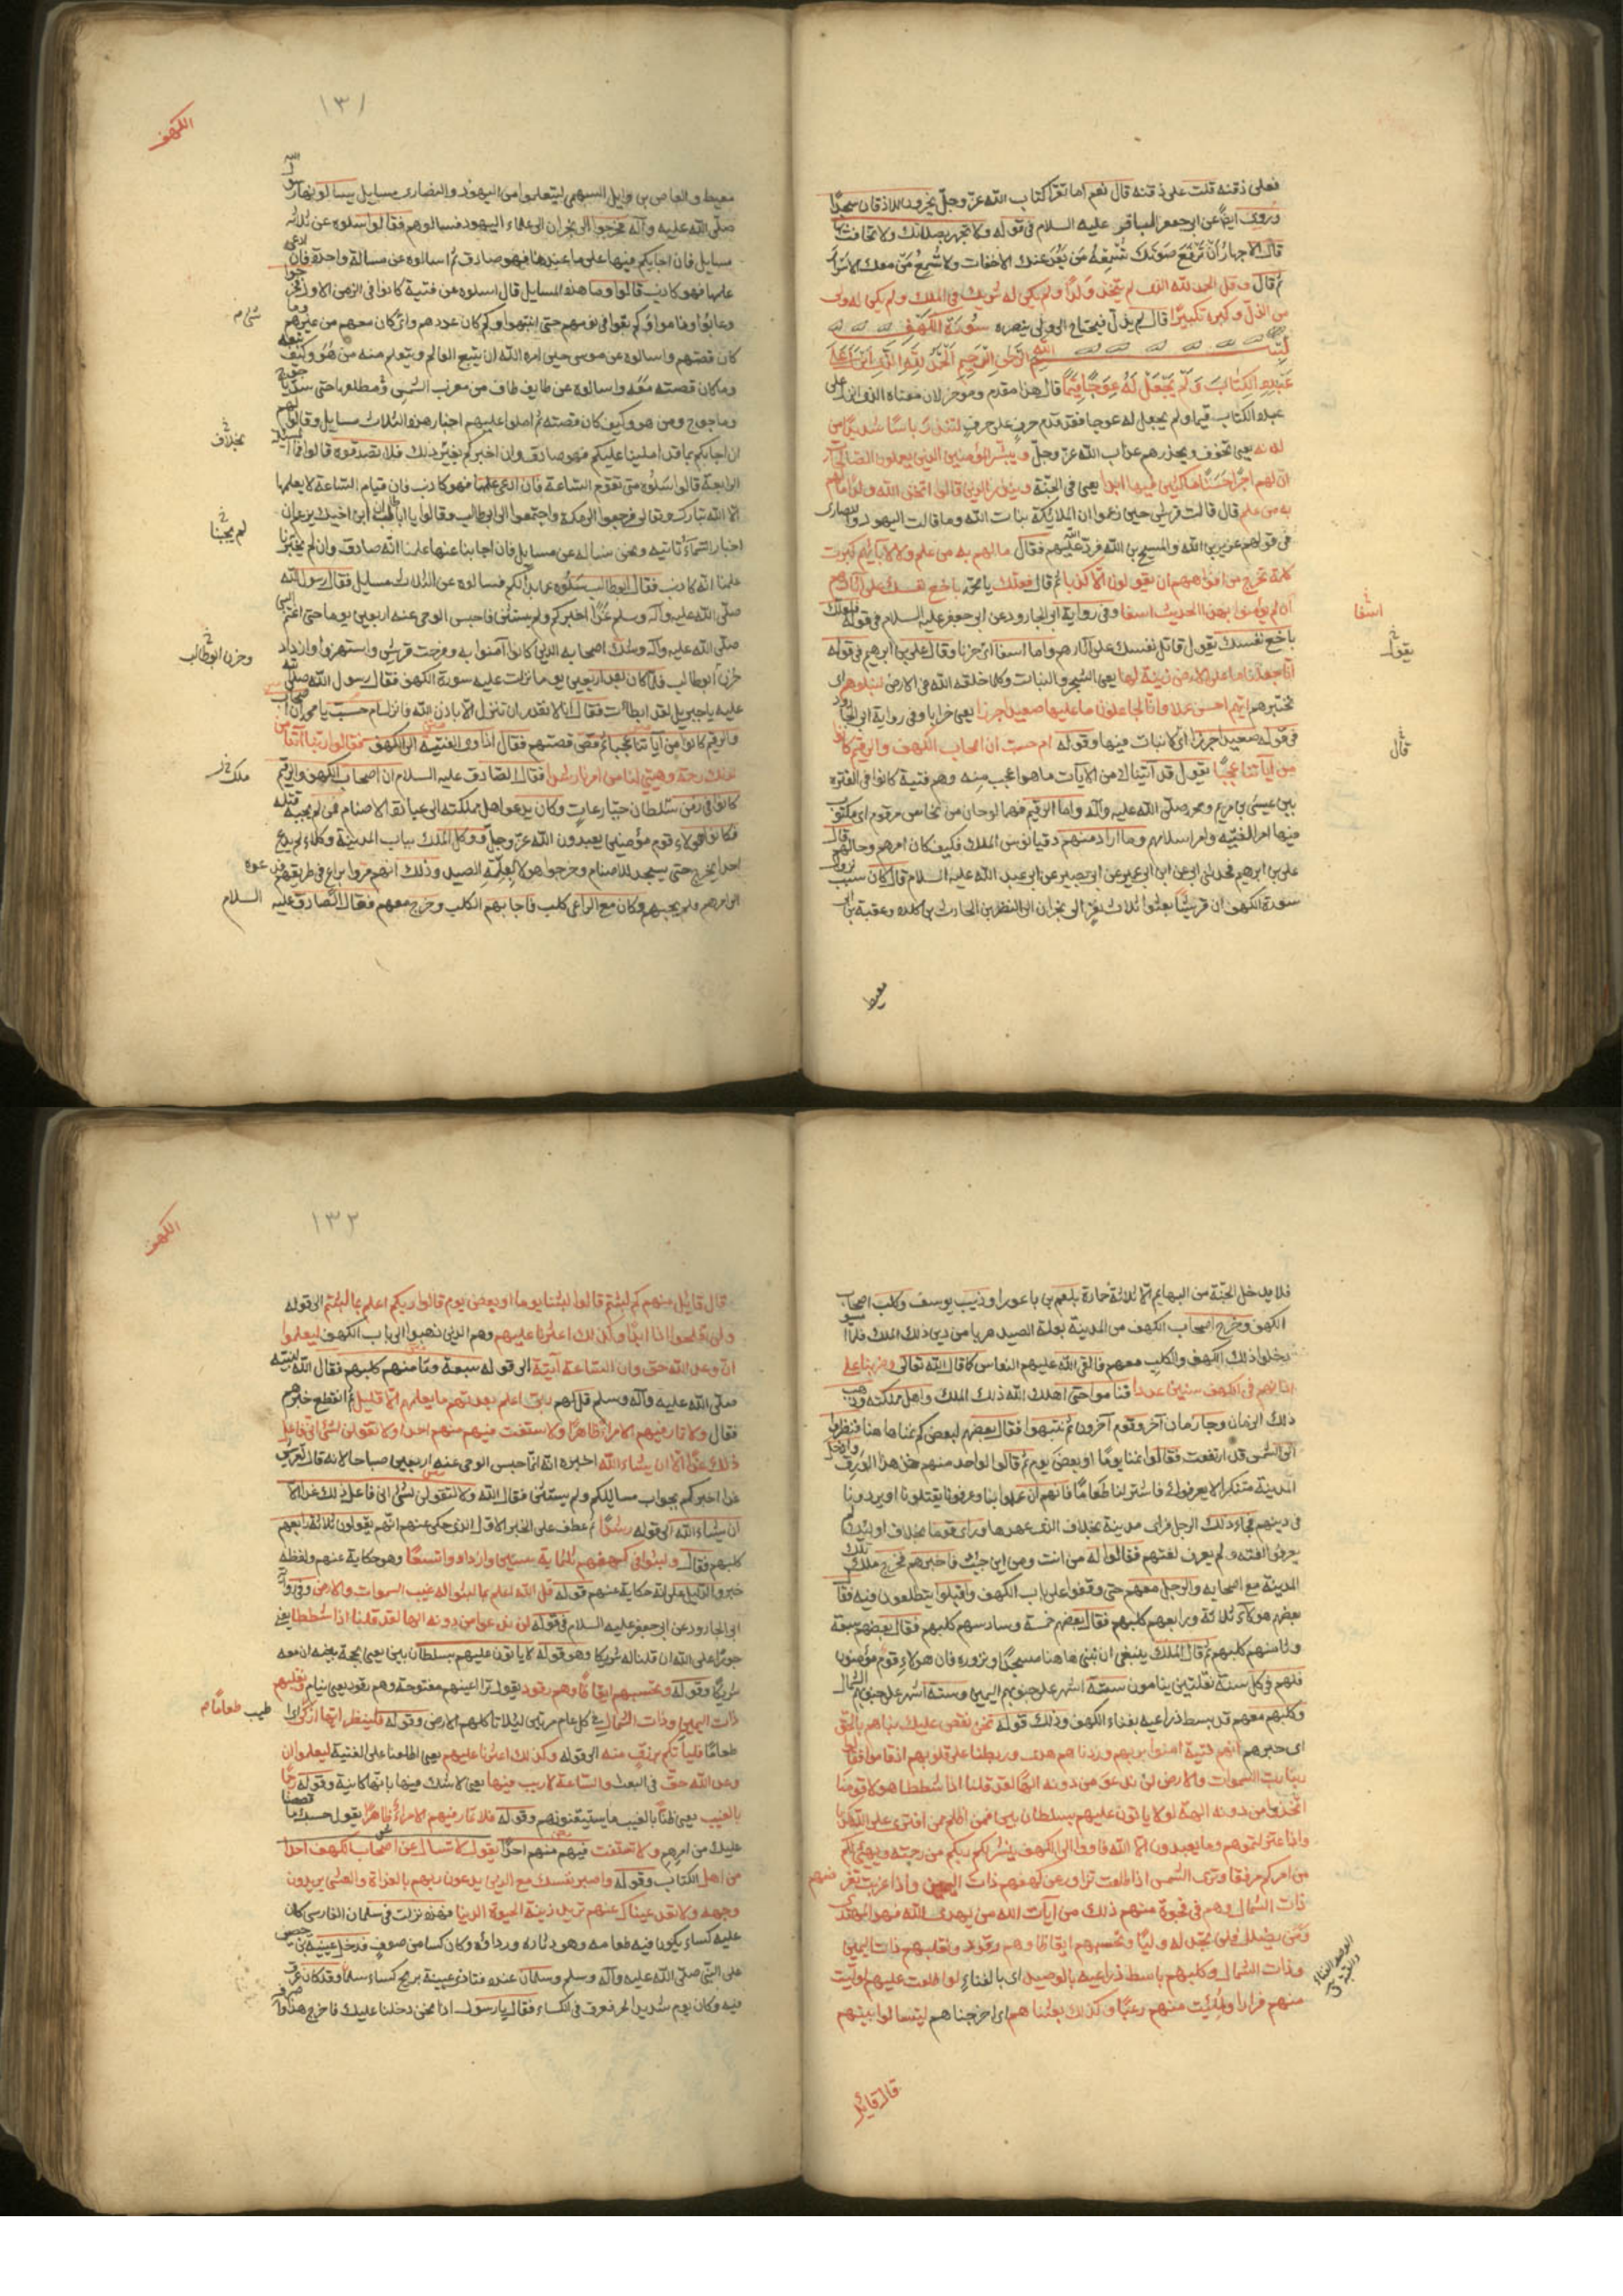 فعلى ذقنه قلت على ذقنه قال نعم اما تقرأ كتاب الله عزّ وجلّ يخرّون للاذقان سجدًا
وروى ايضًا عن ابى جعفر الباقر عليه السلام فى قوله ولا تجهر بصلاتك ولا تخافت بها
قال الاجهار أن ترفع صوتك تسمعه من بَعُد عنك والاخفات ولا تسمع من معك الا سرًا
ثم قال وقل الحمد لله الذى لم يتخذ ولدًا ولم يكن له شريك فى الملك ولم يكن له ولى
من الذلّ وكبره تكبيرًا قال لم يذلّ فيحتاج الى ولى ينصره سورة الكهف
بسم الله الرحمن الرحيم الحمد لله الذى انزل على
عبده الكتاب ولم يجعل له عوجا قيّمًا قال هذا مقدم وموخر لان معناه الذى انزل على
عبده الكتاب قيما ولم يجعل له عوجا فقد قدم حرف على حرف لتنذر بأسًا شديدًا من
لدنه يعنى تخوف ويحذرهم عذاب الله عزّ وجلّ ويبشّر المؤمنين الذين يعملون الصالحات
انّ لهم اجرًا حسنًا ماكثين فيه ابدا يعنى فى الجنّة وينذر الذين قالوا اتخذ الله ولدا ما لهم
به من علم قال قالت قريش حين زعموا ان الملائكة بنات الله وما قالت اليهود والنصارى
فى قولهم عزير بن الله والمسيح بن الله فردّ الله عليهم فقال ما لهم به من علم ولا لآبائهم كبرت
كلمة تخرج من افواههم ان يقولون الّا كذبا ثم قال فلعلك يا محمد باخع نفسك على آثارهم
ان لم يؤمنوا بهذا الحديث اسفا وفى رواية ابى الجارود عن ابى جعفر عليه السلام فى قوله فلعلك
اسفا
باخع نفسك يقول قاتل نفسك على آثارهم واما اسفا اى حزنا وقال على بن ابرهيم فى قوله
يقول
انّا جعلنا ما على الارض زينة لها يعنى الشجر والنبات وكلما خلقه الله فى الارض لنبلوهم اى
نختبرهم ايّهم احسن عملا وانّا لجاعلون ما عليها صعيدا جرزا يعنى خرابا وفى رواية ابى الجارود
فى قوله صعيدا جرزا اى لا نبات فيها وقوله ام حسبت ان اصحاب الكهف والرقيم كانوا
قال
من آياتنا عجبًا يقول قد آتيناك من الآيات ما هو اعجب منه وهم فتية كانوا فى الفترة
بين عيسى بن مريم ومحمد صلّى الله عليه وآله واما الرقيم فهما لوحان من نحاس مرقوم اى مكتوب
فيهما امر الفتية وامر اسلامهم وما اراد منهم دقيانوس الملك فكيف كان امرهم وحالهم قال
على بن ابرهيم فحدثنى ابى عن ابن ابى عمير عن ابى بصير عن ابى عبد الله عليه السلام قال كان سبب نزول
سورة الكهف ان قريشًا بعثوا ثلاث نفر الى نجران الى النظر بن الحارث بن كلده وعقبة بن ابى
معيط
١٣١
الكهف
معيط والعاص بن وايل السهمى ليتعلموا من اليهود والنصارى مسايل يسالونها رسول الله
صلّى الله عليه وآله فخرجوا الى نجران الى علماء اليهود فسالوهم فقالوا اسلوه عن ثلاث
مسايل فان اجابكم فيها على ما عندنا فهو صادق ثم اسالوه عن مسالة واحدة فان ادعى
علمها فهو كاذب قالوا وما هذه المسايل قال اسلوه عن فتية كانوا فى الزمن الاول فخرجوا
وغابوا وناموا وكم بقوا فى نومهم حتى انتبهوا وكم كان عددهم واىّ كان معهم من غيرهم وما
كان قصتهم واسالوه عن موسى حين امره الله ان يتبع العالم ويتعلم منه من هو وكيف تبعه
وما كان قصته معه واسالوه عن طايف طاف من مغرب الشمس ومطلعها حتى سدّ ياجوج
وماجوج ومن هو وكيف كان قصته ثم املوا عليهم اخبار هذه الثلاث مسايل وقالوا لهم
بخلاف
ان اجابكم بما قد املينا عليكم فهو صادق وان اخبركم بغير ذلك فلا تصدقوه قالوا فما المسئلة
الرابعة قالوا سلوه متى تقوم الساعة فان ادعى علمها فهو كاذب فان قيام الساعة لا يعلمها
الّا الله تبارك وتعالى فرجعوا الى مكة واجتمعوا الى ابى طالب وقالوا يا ابا طالب ان ابن اخيك يزعم ان
لم يجبنا
اخبار السماء تاتيه ونحن نساله عن مسايل فان اجابنا عنها علمنا انّه صادق وان لم يخبرنا
علمنا انّه كاذب فقال ابو طالب سلوه عما بدا لكم فسالوه عن الثلاث مسايل فقال رسول الله
صلّى الله عليه وآله وسلم غدًا اخبركم ولم يستثن فاحبس الوحى عنه اربعين يوما حتى اغتم النبى
صلّى الله عليه وآله وشك اصحابه الذين كانوا آمنوا به وفرحت قريش واستهزؤا وازداد
وحزن ابو طالب
حزن ابو طالب فلمّا كان بعد اربعين يوما نزلت عليه سورة الكهف فقال رسول الله صلى الله
عليه يا جبريل لقد ابطأت فقال انّا لا نقدر ان ننزل الّا باذن الله فانزل ام حسبت يا محمد ان اصحاب الكهف
والرقيم كانوا من آياتنا عجبا ثم قصّ قصتهم فقال اذ اوى الفتية الى الكهف فقالوا ربّنا آتنا من
لدنك رحمة وهيّئ لنا من امرنا رشدا فقال الصادق عليه السلام ان اصحاب الكهف والرقيم
ملك
كانوا فى زمن سلطان جبّار عاتٍ وكان يدعو اهل مملكته الى عبادة الاصنام فمن لم يجبه قتله
فكانوا هولاء قوم مؤمنين يعبدون الله عزّ وجلّ ووكل الملك بباب المدينة وكلاء لم يدع
احدا يخرج حتى يسجد للاصنام وخرجوا هولاء بعلّة الصيد وذلك انهم مروا براع فى طريقهم فدعوه
الى امرهم ولم يجبهم وكان مع الراعى كلب فاجابهم الكلب وخرج معهم فقال الصّادق عليه السلام
فلا يدخل الجنّة من البهايم الّا ثلاثة حمارة بلعم بن باعورا وذيب يوسف وكلب اصحاب
الكهف وخرج اصحاب الكهف من المدينة بعلة الصيد هربا من دين ذلك الملك فلمّا امسوا
دخلوا ذلك الكهف والكلب معهم فالقى الله عليهم النعاس كما قال الله تعالى وضربنا على
اذانهم فى الكهف سنين عددا فناموا حتى اهلك الله ذلك الملك واهل مملكته وذهب
ذلك الزمان وجا زمان آخر وقوم آخرون ثم نتبهوا فقال بعضهم لبعض كم نمنا هاهنا فنظروا
الى الشمس قد ارتفعت فقالوا نمنا يومًا او بعض يوم ثم قالوا لواحد منهم خذ هذا الورق وادخل
المدينة متنكرا لا يعرفوك فاشتر لنا طعامًا فانهم ان علموا بنا وعرفونا يقتلونا او يردونا
فى دينهم فجاء ذلك الرجل فراى مدينة بخلاف الذى عهدها وراى قوما بخلاف اولئك لم
يعرفوا لغته ولم يعرف لغتهم فقالوا له من انت ومن اين جئت فاخبرهم فخرج ملك تلك
المدينة مع اصحابه والرجل معهم حتى وقفوا على باب الكهف واقبلوا يتطلعون فيه فقال
بعضهم هولاء ثلاثة ورابعهم كلبهم فقال بعضهم خمسة وسادسهم كلبهم فقال بعضهم سبعة
وثامنهم كلبهم ثم قال الملك ينبغى ان نبنى هاهنا مسجدًا ونزوره فان هولاء قوم مؤمنون
فلهم فى كل سنة نقلتين ينامون ستة اشهر على جنوبهم اليمين وستة اشهر على جنوبهم الشمال
وكلبهم معهم قد بسط ذراعيه بفناء الكهف وذلك قوله نحن نقص عليك نباهم بالحق
اى خبرهم انهم فتية امنوا بربهم وزدناهم هدى وربطنا على قلوبهم اذ قاموا فقالوا
ربّنا ربّ السموات والارض لن ندعو من دونه الهًا لقد قلنا اذا شططا هولا قومنا
اتخذوا من دونه الهة لولا ياتون عليهم بسلطان بيّن فمن اظلم ممن افترى على الله كذبا
واذ اعتزلتموهم وما يعبدون الّا الله فاووا الى الكهف ينشر لكم ربكم من رحمته ويهيئ لكم
من امركم مرفقا وترى الشمس اذا طلعت تزاور عن كهفهم ذات اليمين واذا غربت تقرضهم
ذات الشمال وهم فى فجوة منهم ذلك من آيات الله من يهدى الله فهو المهتد
ومن يضلل فلن تجد له وليًا وتحسبهم ايقاظا وهم رقود ونقلبهم ذات اليمين
وذات الشمال وكلبهم باسط ذراعيه بالوصيد اى بالفناء لو اطلعت عليهم لوليت
الوصيد الفناء والعتبة
منهم فرارا ولملئت منهم رعبًا وكذلك بعثناهم اى اخرجناهم ليتسالوا بينهم
قال قايل
١٣٢
الكهف
قال قايل منهم كم لبثتم قالوا لبثنا يوما او بعض يوم قالوا ربكم اعلم بما لبثتم الى قوله
ولن تفلحوا اذا ابدًا وكذلك اعثرنا عليهم وهم الذين ذهبوا الى باب الكهف ليعلموا
انّ وعد الله حق وان الساعة آتية الى قوله سبعة وثامنهم كلبهم فقال الله لنبيّه
صلّى الله عليه وآله وسلم قل لهم ربى اعلم بعدتهم ما يعلمهم الّا قليل ثم انقطع خبرهم
فقال ولا تمار فيهم الا مراءً ظاهرًا ولا تستفت فيهم منهم احدا ولا تقولن لشئ انى فاعل
ذلك غدًا الّا ان يشاء الله اخبره انّه انّما حبس الوحى عنه اربعين صباحا لانه قال لقريش
غدا اخبركم بجواب مسايلكم ولم يستثن فقال الله ولا تقولن لشئ انى فاعل ذلك غدا الّا
أن يشاء الله الى قوله رشدًا ثم عطف على الخبر الاول الذى حكى عنهم انّهم يقولون ثلاثة رابعهم
كلبهم فقال ولبثوا فى كهفهم ثلثماية سنين وازدادوا تسعًا وهو حكاية عنهم ولفظه
خبر والدليل على انه حكاية عنهم قوله قل الله اعلم بما لبثوا له غيب السموات والارض وفى رواية
ابى الجارود عن ابى جعفر عليه السلام فى قوله لن ندعو من دونه الها لقد قلنا اذا شططا يعنى
جورًا على الله ان قلنا له شريكا وهو قوله لا ياتون عليهم بسلطان بيّن يعنى بحجة بينة ان معه
شريكًا وقوله وتحسبهم ايقاظًا وهم رقود يقول ترا اعينهم مفتوحة وهم رقود يعنى نيام ونقلبهم
ذات اليمين وذات الشمال فى كل عام مرتين لئلا تاكلهم الارض وقوله فلينظر ايّها ازكى اى
طيب طعامًا
طعامًا فلياتكم برزق منه الى قوله وكذلك اعثرنا عليهم يعنى اطلعنا على الفتية ليعلموا ان
وعد الله حق فى البعث والساعة لا ريب فيها يعنى لا شك فيها بانّها كاينة وقوله رجمًا
بالغيب يعنى ظنًا بالغيب ما يستيقنونهم وقوله فلا تمار فيهم الا مراءً ظاهرًا يقول حسبك ما قصصنا
عليك من امرهم ولا تستفت فيهم منهم احدًا يقول لا تسال عن اصحاب الكهف احدا
من اهل الكتاب وقوله واصبر نفسك مع الذين يدعون ربهم بالغداة والعشى يريدون
وجهه ولا تعد عيناك عنهم تريد زينة الحيوة الدنيا فهذه نزلت فى سلمان الفارسى كان
عليه كساء يكون فيه طعامه وهو دثاره ورداؤه وكان كسا من صوف فدخل عيينة بن حصين
على النبى صلّى الله عليه وآله وسلم وسلمان عنده فتاذى عيينة بريح كساء سلمان وقد كان عرق
فيه وكان يوم شديد الحر فعرق فى الكساء فقال يا رسول اذا نحن دخلنا عليك فاخرج هذا واصرف